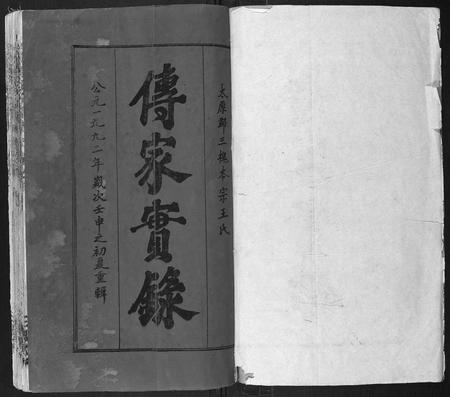 太原郡三槐本宗王氏
傳家實錄
公元一九九二年歲次壬申之初夏重輯